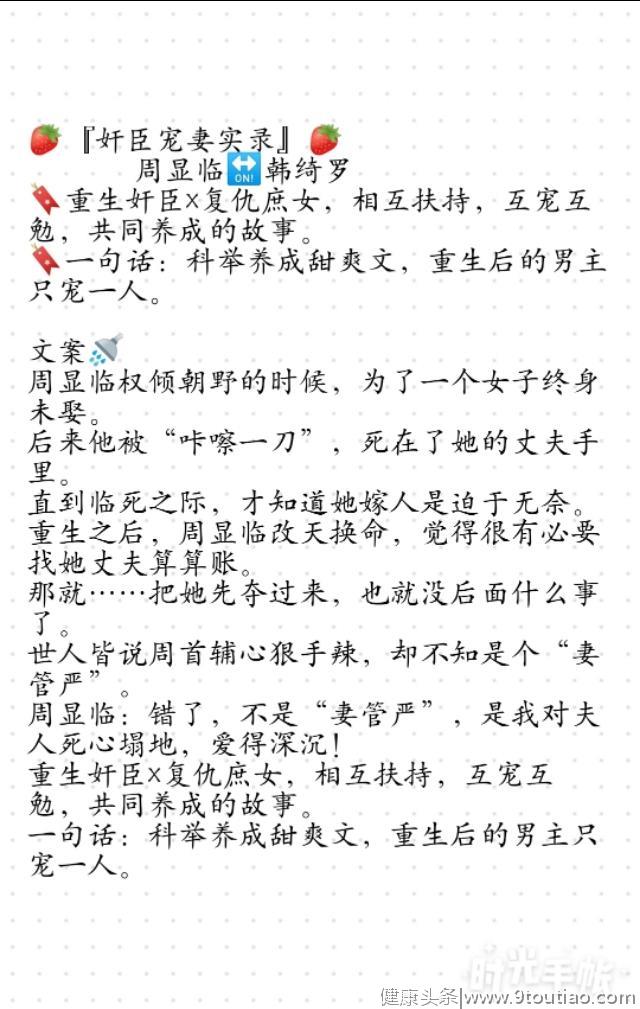 🍓『奸臣宠妻实录』🍓
周显临🔛韩绮罗
🔖重生奸臣×复仇庶女，相互扶持，互宠互
勉，共同养成的故事。
🔖一句话：科举养成甜爽文，重生后的男主
只宠一人。
文案🚿
周显临权倾朝野的时候，为了一个女子终身
未娶。
后来他被“咔嚓一刀”，死在了她的丈夫手
里。
直到临死之际，才知道她嫁人是迫于无奈。
重生之后，周显临改天换命，觉得很有必要
找她丈夫算算账。
那就……把她先夺过来，也就没后面什么事
了。
世人皆说周首辅心狠手辣，却不知是个“妻
管严”。
周显临：错了，不是“妻管严”，是我对夫
人死心塌地，爱得深沉！
重生奸臣×复仇庶女，相互扶持，互宠互
勉，共同养成的故事。
一句话：科举养成甜爽文，重生后的男主只
宠一人。
时光手帐
健康头条|www.9toutiao.com